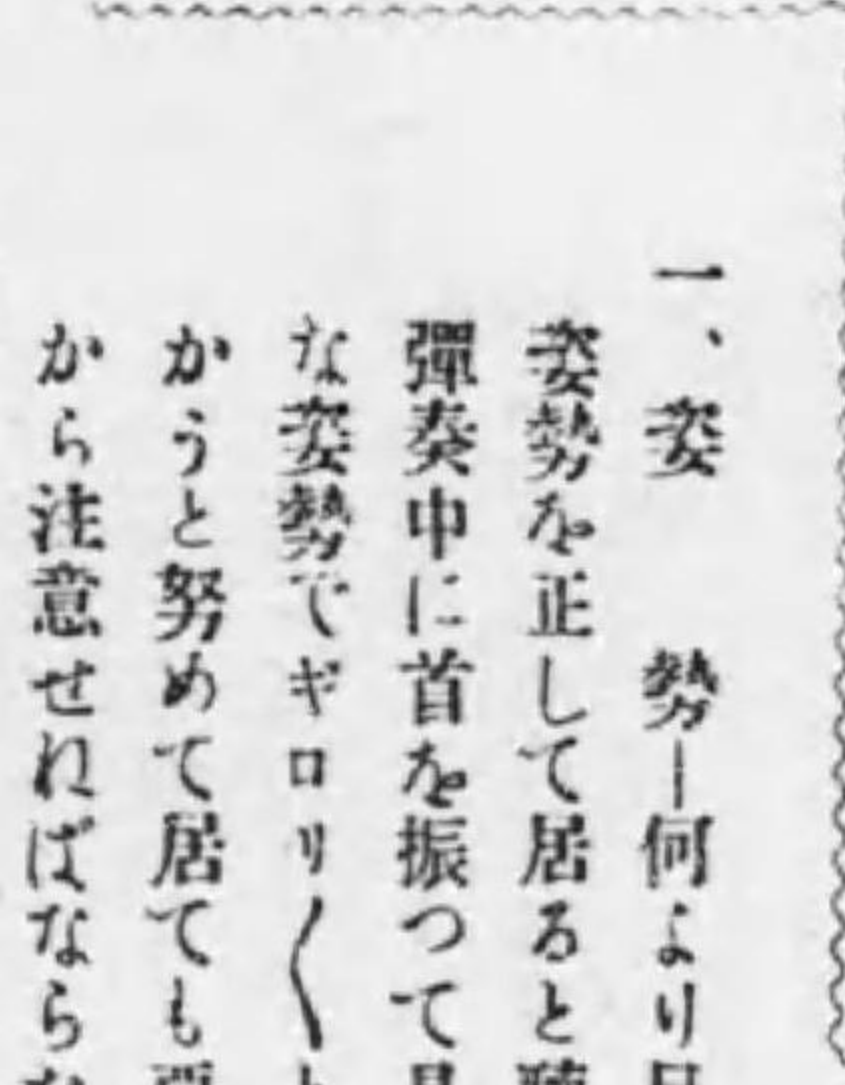 一、姿　　勢―何より
姿勢を正して居ると
彈奏中に首を振つて
な姿勢でギロリ〱
かうと努めて居ても
から注意せねばなら